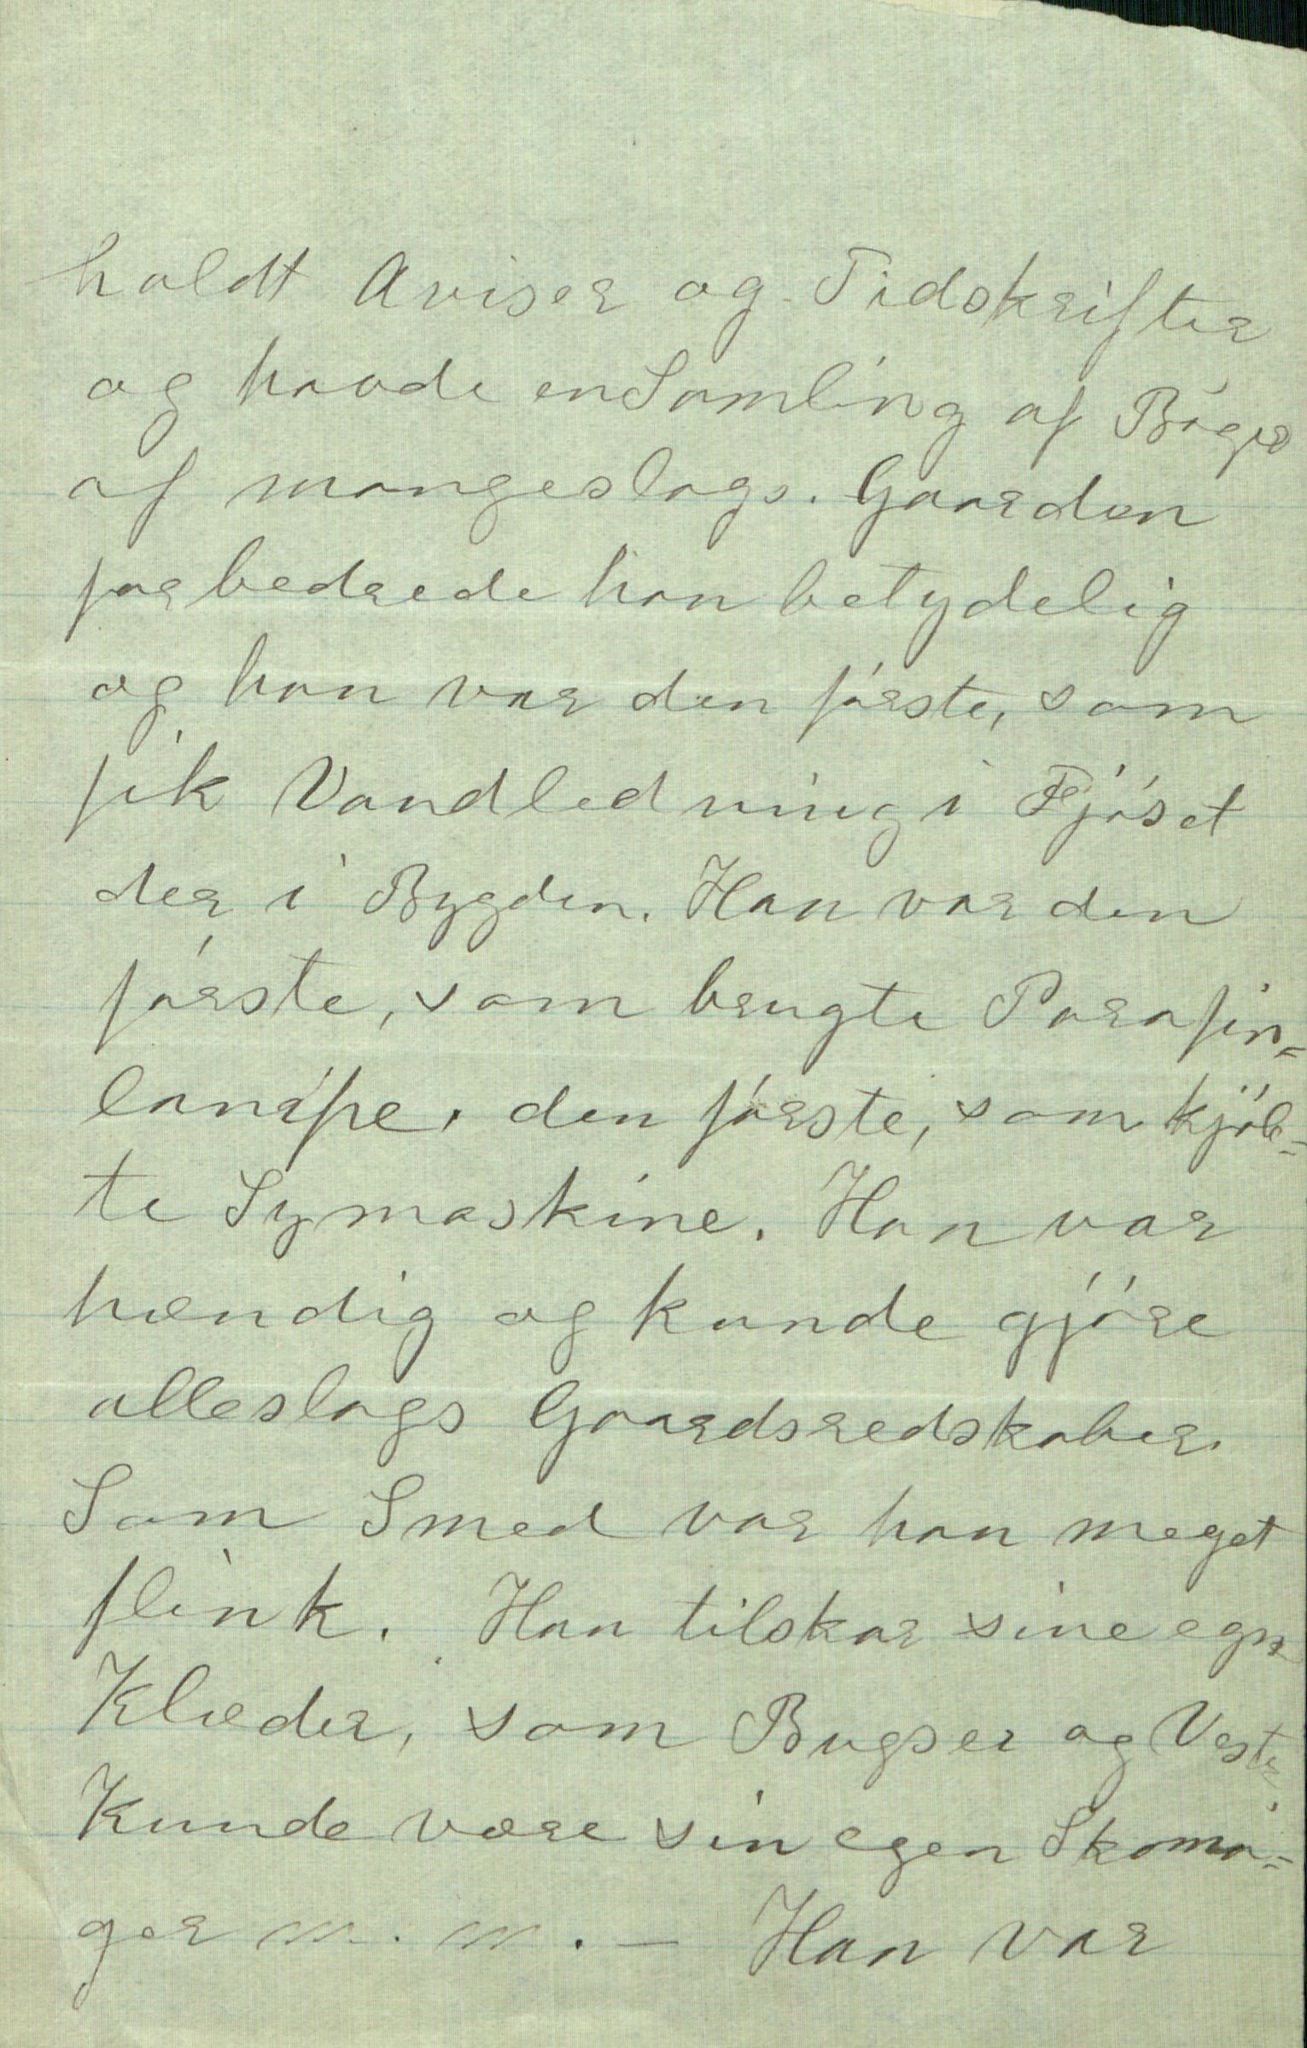 holdt Aviser og Tidskrifter
og havde en Samling af Bøger
af mangeslags. Gaarden
forbedrede han betydelig
og han var den første, som
fik Vandledning i Fjøset
der i Bygden. Han var den
første, som brugte Parafin-
lampe, den første, som kjøb-
te Symaskine. Han var
hændig og kunde gjøre
alleslags Gaardsredskaber.
Som Smed var han meget
flink. Han tilskar sine egne
Klæder, som Bugser og Veste.
Kunde være sin egen Skoma-
ger m. m. — Han var